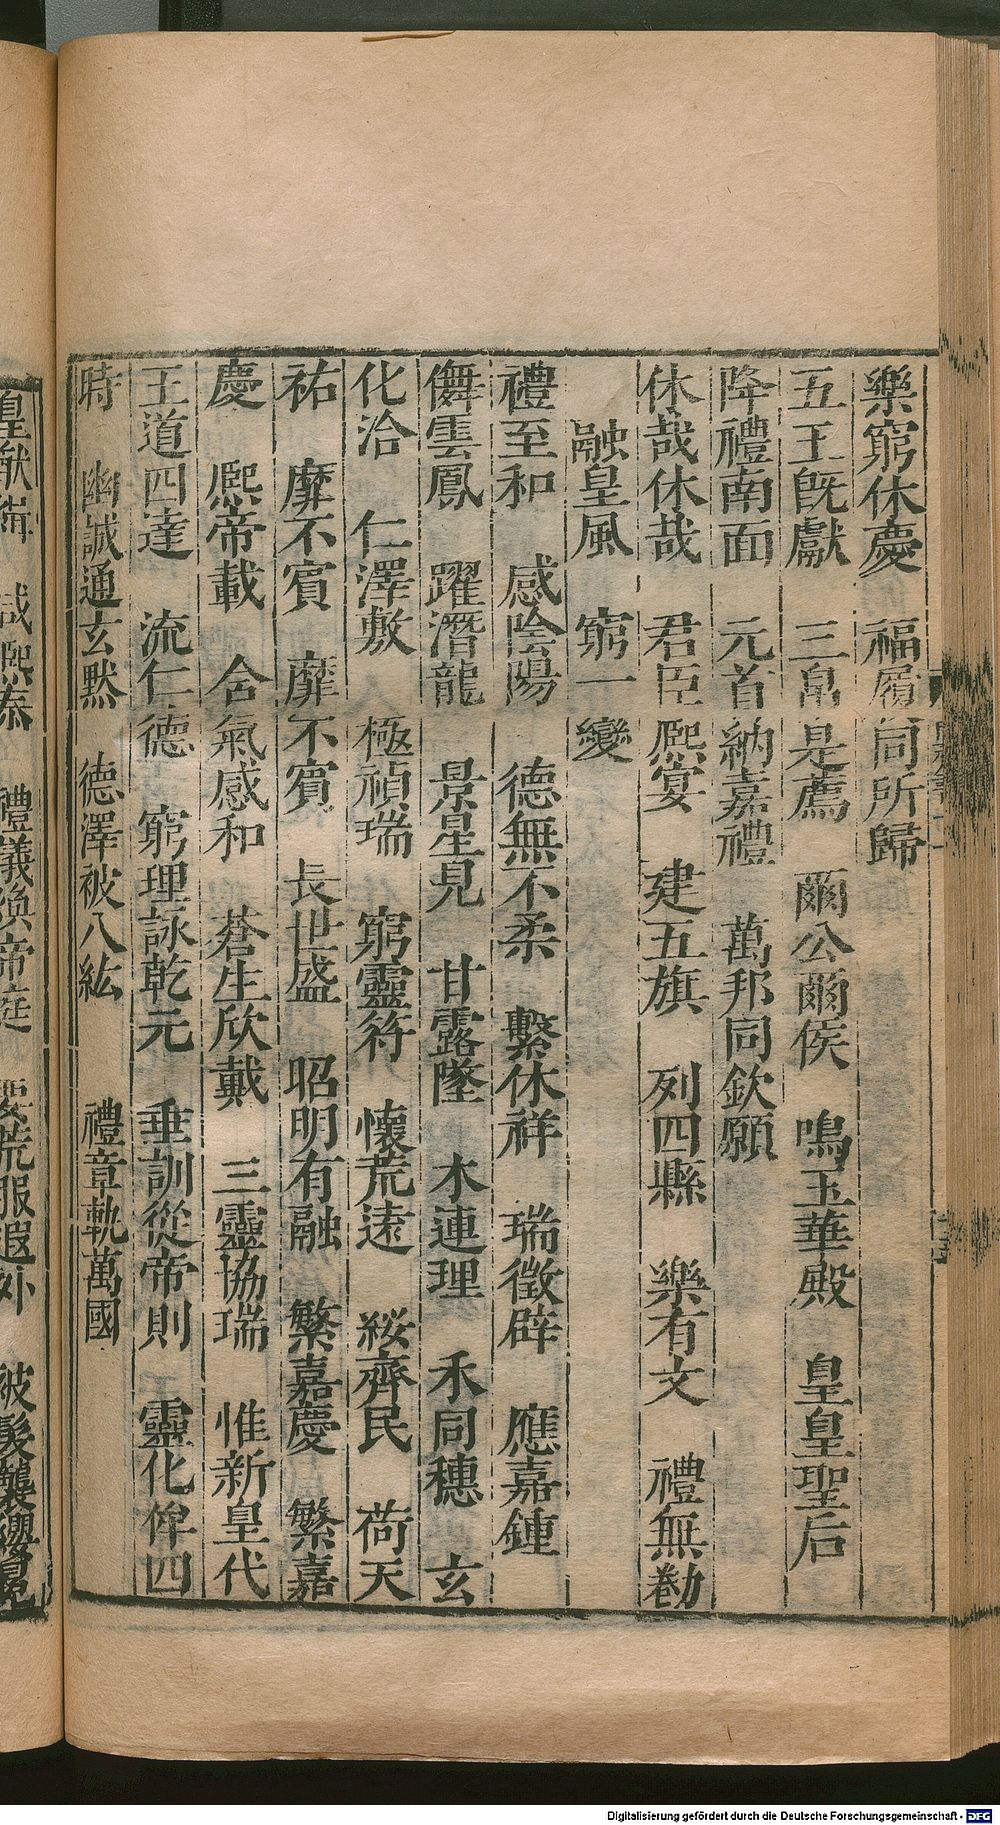 樂窮休慶　福履同所歸
五玉旣獻　三帛是薦　爾公爾侯　鳴玉華殿　皇皇聖后
降禮南面　元首納嘉禮　萬邦同欽願
休哉休哉　君臣熙宴　建五旗　列四縣　樂有文　禮無勌
融皇風　窮一變
禮至和　感陰陽　德無不柔　繫休祥　瑞徵辟　應嘉鍾
儛雲鳳　躍潛龍　景星見　甘露墜　木連理　禾同穗　玄
化洽　仁澤敷　極禎瑞　窮靈符　懷荒遠　綏齊民　荷天
祐　靡不賓　靡不賓　長世盛　昭明有融　繁嘉慶　繁嘉
慶　熙帝載　含氣感和　蒼生欣戴　三靈協瑞　惟新皇代
王道四達　流仁德　窮理詠乾元　垂訓從帝則　靈化侔四
時　幽誠通玄默　德澤被八紘　禮章軌萬國
皇猷緝　咸熙泰　禮儀渙帝庭　要荒服遐外　被髮襲纓冕
Digitalisierung gefördert durch die Deutsche Forschungsgemeinschaft - DFG